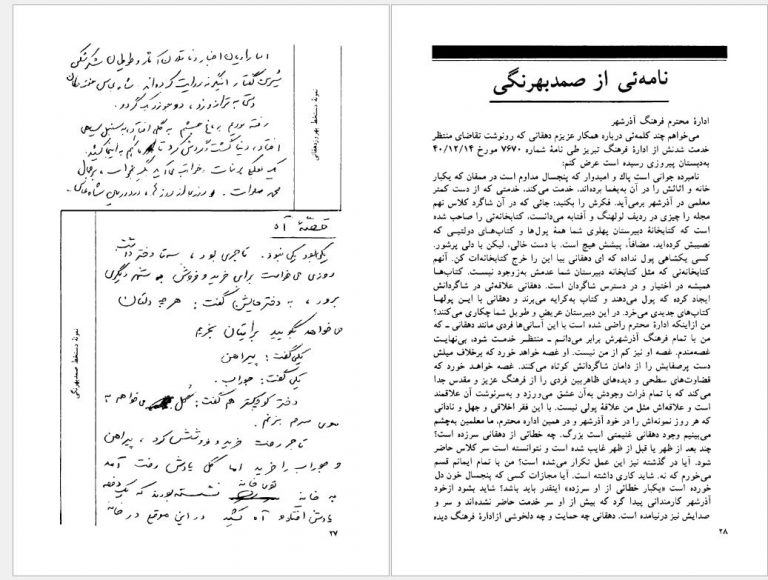 اما راویان اخبار و ناقلان آثار و طوطیان شکرشکن
شیرین گفتار اینگونه روایت کرده‌اند
وقتی به ترازو زد، دو جو زر کم آورد.
رفته بودیم به باغ
نمونهٔ دستخط بهروز دهقانی
قصهٔ آه
یکی بود یکی نبود. تاجری بود، سه تا دختر داشت.
روزی می‌خواست برای خرید و فروش به شهر دیگری
برود، به دخترهایش گفت: هر چه دلتان
می‌خواهد بگویید برایتان بخرم
یکی گفت: پیراهن
یکی گفت: جوراب.
دختر کوچکتر هم گفت: گل می‌خواهم به
موی سرم بزنم.
تاجر رفت خرید و فروشش کرد، پیراهن
و جوراب را خرید اما گل یادش رفت آمد
به خانه توی خانه نشسته بود که یکدفعه
یادش افتاد و آه کشید در این موقع در خانه
نمونهٔ دستخط صمدبهرنگی
۲۷
نامه‌ئی از صمدبهرنگی
ادارهٔ محترم فرهنگ آذرشهر
می‌خواهم چند کلمه‌ئی درباره همکار عزیزم دهقانی که رونوشت تقاضای منتظر
خدمت شدنش از ادارهٔ فرهنگ تبریز طی نامهٔ شماره ۷۶۷۰ مورخ ۴۰/۱۲/۱۴
به‌دبستان پیروزی رسیده است عرض کنم:
نامبرده جوانی است پاك و امیدوار که پنجسال مداوم است در ممقان که یکبار
خانه و اثاثش را در آن به‌یغما برده‌اند، خدمت می‌کند، خدمتی که از دست کمتر
معلمی در آذرشهر برمی‌آید. فکرش را بکنید: جائی که در آن شاگرد کلاس نهم
مجله را چیزی در ردیف لولهنگ و آفتابه می‌دانست، کتابخانه‌ئی را صاحب شده
است که کتابخانهٔ دبیرستان پهلوی شما همهٔ پول‌ها و کتاب‌های دولتیی که
نصیبش کرده‌اید، مضافاً، پیشش هیچ است. با دست خالی، لیکن با دلی پرشور.
کسی یکشاهی پول نداده که ای دهقانی بیا این را خرج کتابخانه‌ات کن. آنهم
کتابخانه‌ئی که مثل کتابخانه دبیرستان شما عدمش به‌زوجود نیست. کتاب‌هـا
همیشه در اختیار و در دسترس شاگردان است. دهقانی علاقه‌ئی در شاگردانش
ایجاد کرده که پول می‌دهند و کتاب به‌کرایه می‌برند و دهقانی با ایـن پولهـا
کتاب‌های جدیدی می‌خرد. در این دبیرستان عریض و طویل شما چکاری می‌کنند؟
من ازاینکه ادارهٔ محترم راضی شده است با این آسانی‌ها فردی مانند دهقانی ـ که
من با تمام فرهنگ آذرشهرش برابر می‌دانـم ـ منتظـر خدمـت شود، بی‌نهایـت
غصه‌مندم. غصه او نیز کم از من نیست. او غصه خواهد خورد که برخلاف میلش
دست پرصفایش را از دامان شاگردانش کوتاه می‌کنند. غصه خواهـد خـورد که
قضاوت‌های سطحی و دیده‌های ظاهربین فردی را از فرهنگ عزیز و مقدس جدا
می‌کند که با تمام ذرات وجودش به‌آن عشق می‌ورزد و به‌سرنوشت آن علاقمند
است و علاقه‌اش مثل من علاقهٔ پولی نیست. با این فقر اخلاقی و جهل و نادانی
که هر روز نمونه‌اش را در خود آذرشهر و در همین اداره محترم، ما معلمین به‌چشم
می‌بینیم وجود دهقانی غنیمتی است بزرگ. چه خطائی از دهقانی سرزده است؟
چند بعد از ظهر یا قبل از ظهر غایب شده است و نتوانسته است سر کلاس حاضر
شود. آیا در گذشته نیز این عمل تکرار می‌شده است؟ من با تمام ایمانم قسم
می‌خورم که نه. شاید کاری داشته است. آیا مجازات کسی که پنجسال خون دل
خورده است «یکبار خطائی از او سرزده» اینقدر باید باشد؟ شاید بشود ازخود
آذرشهر کارمندانی پیدا کرد که بیش از او سر خدمت حاضر نشده‌اند و سر و
صدایش نیز درنیامده است. دهقانی چه حمایت و چه دلخوشی ازادارهٔ فرهنگ دیده
۲۸